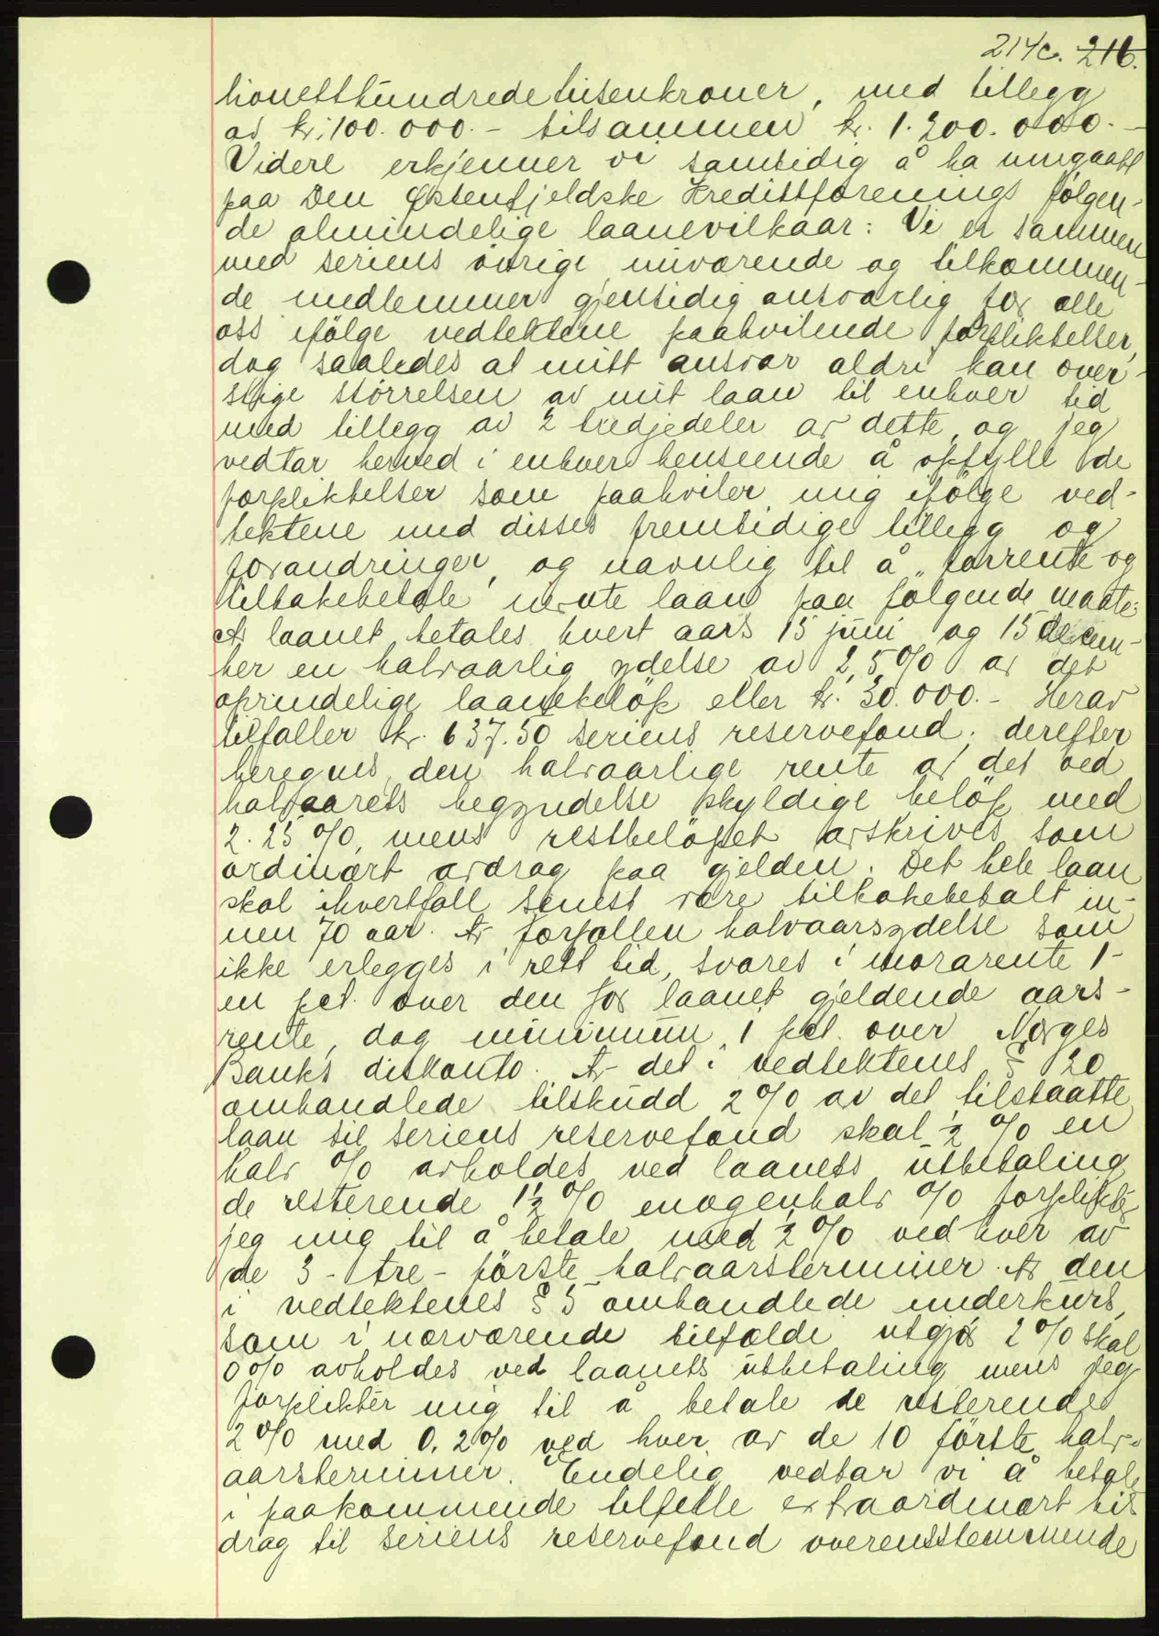 214c. 216.
lionetthundredetusenkroner, med tillegg
av kr. 100.000.- tilsammen kr. 1.200.000.-
Videre erkjenner vi samtidig å ha inngaatt
paa Den Østenfjeldske Kredittforenings følgen-
de almindelige laanevilkaar: Vi er sammen
med seriens øvrige nuværende og tilkommen-
de medlemmer gjensidig ansvarlig for alle
oss ifølge vedtektene paahvilende forpliktelser,
dog saaledes at mitt ansvar aldri kan over-
stige størrelsen av mit laan til enhver tid
med tillegg av 2 tredjedeler av dette, og jeg
vedtar herved i enhver henseende å opfylle de
forpliktelser som paahviler mig ifølge ved-
tektene med disses fremtidige tillegg og
forandringer, og navnlig til å forrente og
tilbakebetale nevnte laan paa følgende maate:
Av laanet betales hvert aars 15 juni og 15 decem-
ber en halvaarlig ydelse av 2,5% av det
oprindelige laanebeløp eller kr. 30.000.- Herav
tilfaller kr. 637.50 seriens reservefond; derefter
beregnes den halvaarlige rente av det ved
halvaarets begyndelse skyldige beløp med
2.25%, mens restbeløpet avskrives som
ordinært avdrag paa gjelden. Det hele laan
skal ihvertfall senest være tilbakebetalt in-
nen 70 aar. Av forfallen halvaarsydelse som
ikke erlegges i rett tid, svares i morarente 1-
en pct. over den for laanet gjeldende aars-
rente, dog minimum 1 pct. over Norges
Banks diskonto. Av det i vedtektenes § 20
omhandlede tilskudd 2% av det tilstaatte
laan til seriens reservefond skal ½ % en
halv % avholdes ved laanets utbetaling
de resterende 1½ % enogenhalv % forplikter
jeg mig til å betale med ½ % ved hver av
de 3 - tre - første halvaarsterminer. Av den
i vedtektenes § 5 omhandlede underkurs,
som i nærværende tilfælde utgjør 2% skal
0% avholdes ved laanets utbetaling mens jeg
forplikter mig til å betale de resterende
2% med 0.2% ved hver av de 10 første halv-
aarsterminer. Endelig vedtar vi å betale
i paakommende tilfelle extraordinært bi-
drag til seriens reservefond overensstemmende